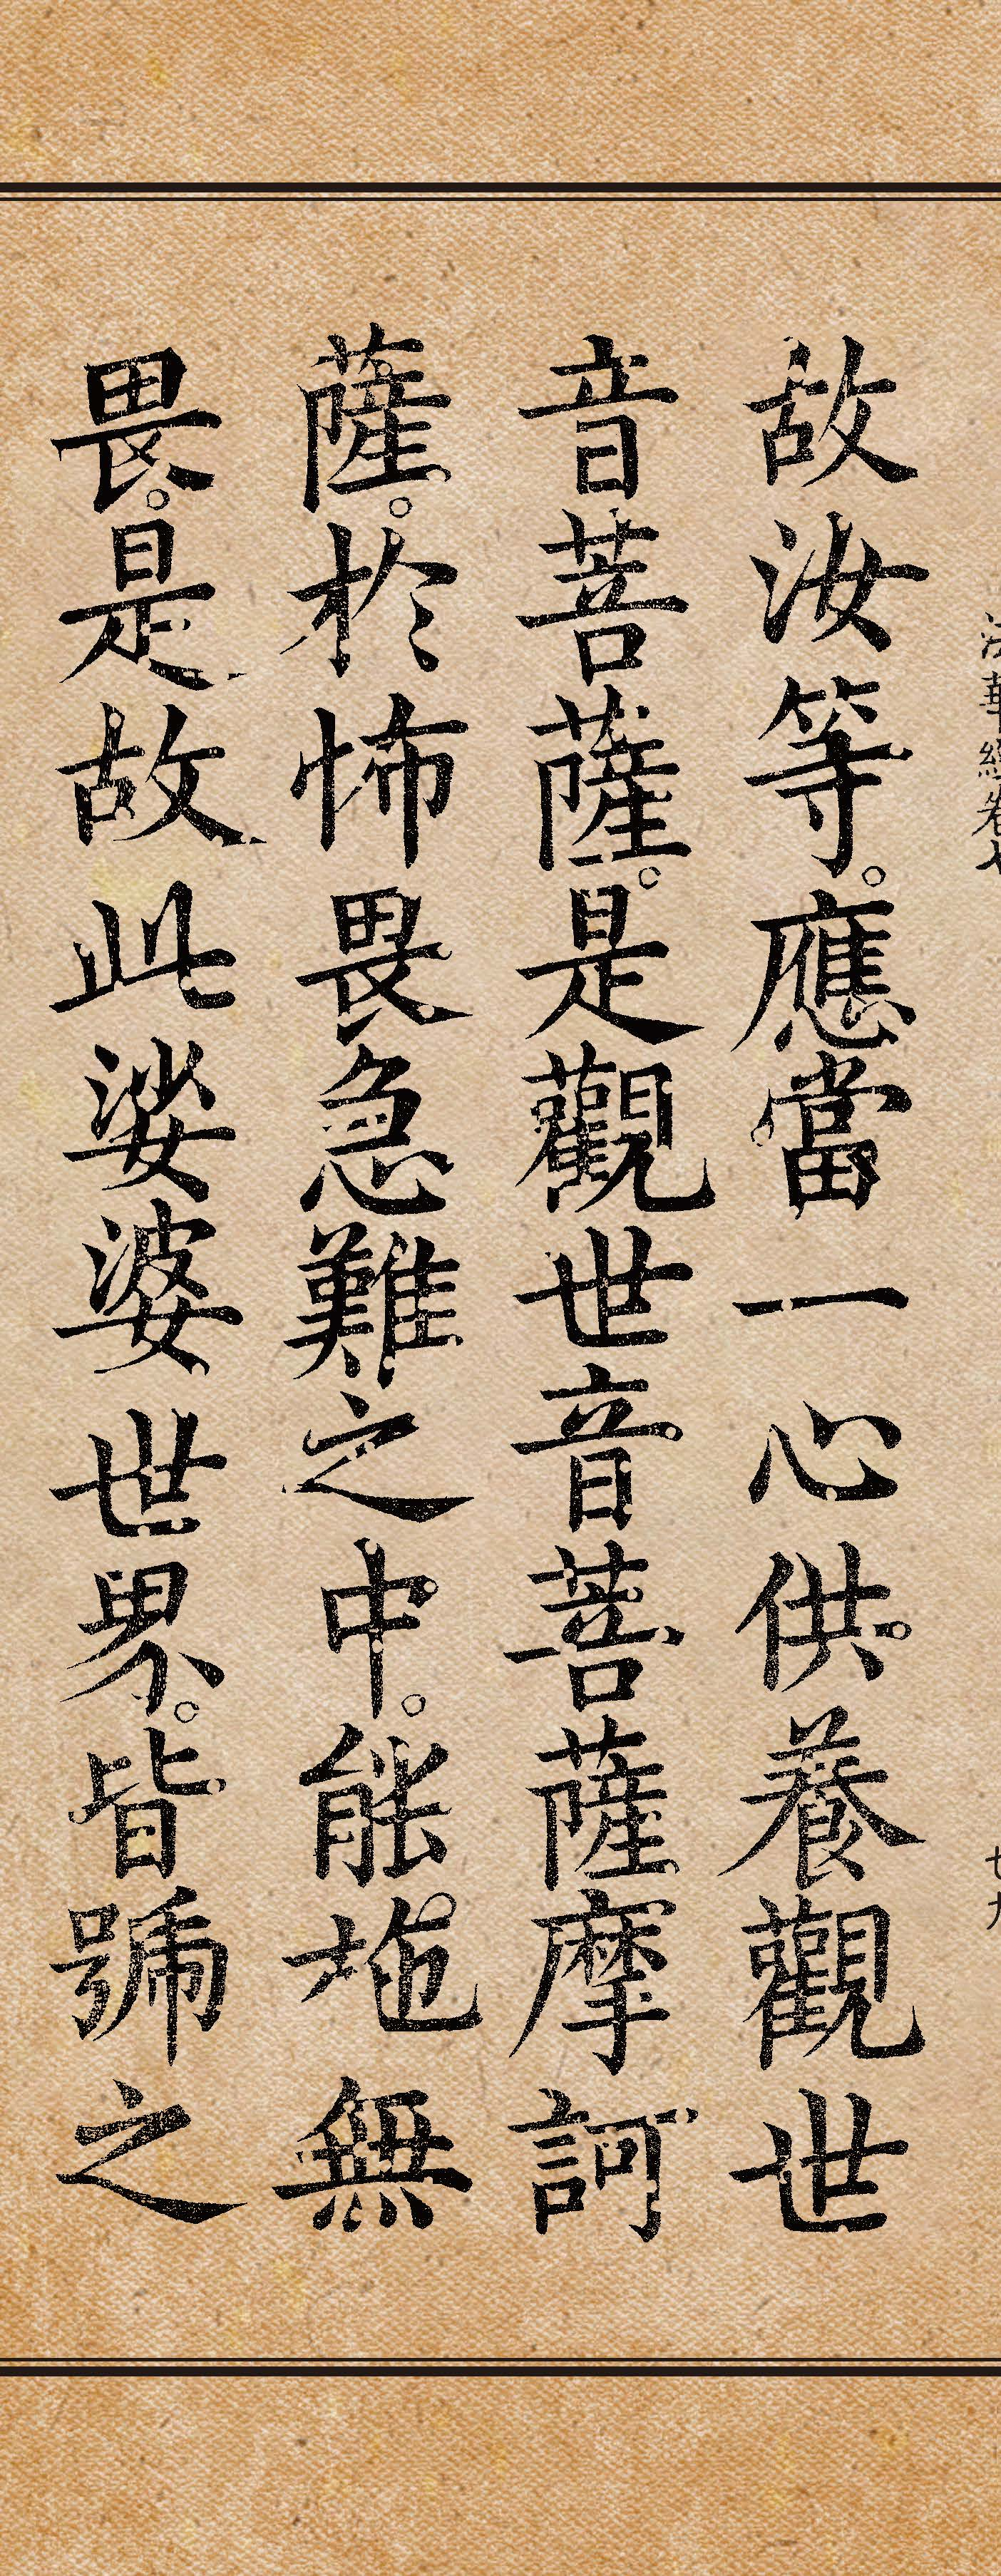 法華經卷七
故汝等。應當一心供養觀世
音菩薩。是觀世音菩薩摩訶
薩。於怖畏急難之中。能施無
畏。是故此娑婆世界。皆號之